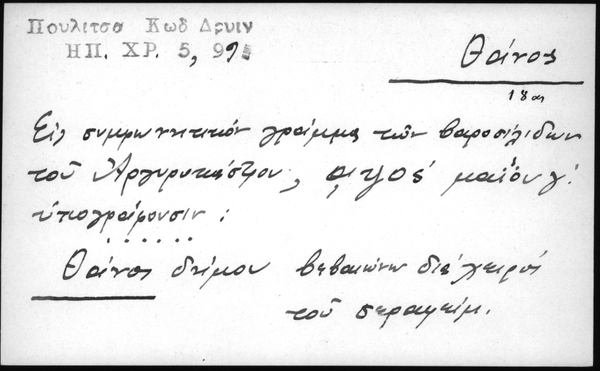 Πουλιτσα Κωδ Δρυιν
ΗΠ. ΧΡ. 5, 95
Θάνος
18 αι
Εἰς συμφωνητικόν γράμμα τῶν βαροσιλίδων
τοῦ Ἀργυροκάστρου, αψοσ´ μαΐου γ´.
ὑπογράφουσιν :
Θάνος δήμου βεβαιώνω διά χειρός
τοῦ σεραφείμ.